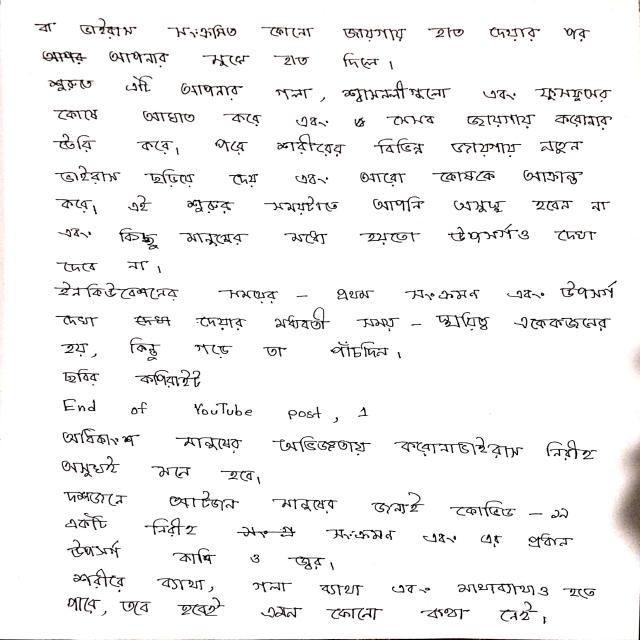 বা ভাইরাস সংক্রমিত কোনো জায়গায় হাত দেয়ার পর
আপনার মুখে হাত দিলে।
শুরুতে এটি আপনার গলা, শ্বাসনালীগুলো এবং ফুসফুসের
কোষে আঘাত করে এবং সেসব জায়গায় করোনার
তৈরি করে। পরে শরীরের বিভিন্ন জায়গায় নতুন
ভাইরাস ছড়িয়ে দেয় এবং আরো কোষকে আক্রান্ত
করে। এই শুরুর সময়টাতে আপনি অসুস্থ হবেন না
এবং কিছু মানুষের মধ্যে হয়তো উপসর্গও দেখা
দেবে না।
ইনকিউবেশনের সময়ের - প্রথম সংক্রমন এবং উপসর্গ
দেখা দেয়ার মধ্যবর্তী সময় - স্থায়িত্ব একেকজনের
হয়, কিন্তু গড়ে তা পাঁচদিন।
ছবির কপিরাইট
End of YouTube post, 1
অধিকাংশ মানুষের অভিজ্ঞতায় করোনাভাইরাস নিরীহ
অসুখই মনে হবে।
দশজনে আটজন মানুষের জন্যই কোভিড - ১৯
একটি নিরীহ সংক্রমন এবং এর প্রধান
উপসর্গ কাশি ও জ্বর।
শরীরে ব্যাথা, গলা ব্যাথা এবং মাথাব্যাথাও হতে
পারে, তবে হবেই এমন কোনো কথা নেই।